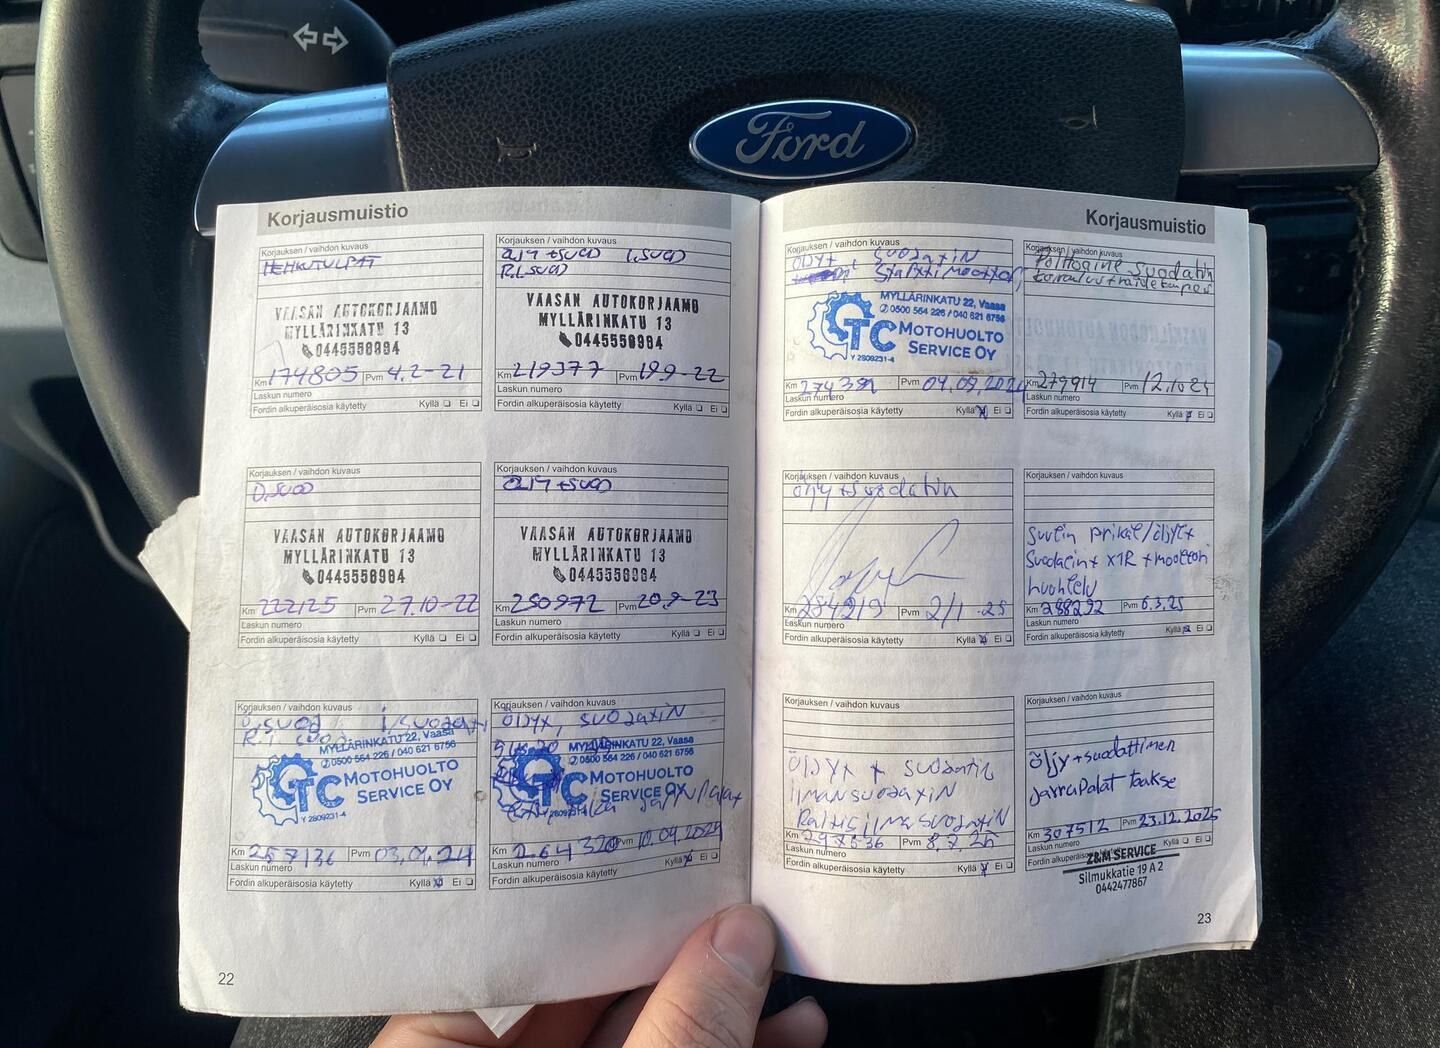 Ford
Korjausmuistio
Korjauksen / vaihdon kuvaus
HEHKUTULPAT
VAASAN AUTOKORJAAMO
MYLLÄRINKATU 13
0445558984
Km 174805 Pvm 4.2-21
Laskun numero
Fordin alkuperäisosia käytetty Kyllä Ei
Korjauksen / vaihdon kuvaus
ÖLJY +SUOD I.SUOD
R.I.SUOD
VAASAN AUTOKORJAAMO
MYLLÄRINKATU 13
0445558984
Km 219377 Pvm 19.9-22
Laskun numero
Fordin alkuperäisosia käytetty Kyllä Ei
Korjauksen / vaihdon kuvaus
Ö.SUOD
VAASAN AUTOKORJAAMO
MYLLÄRINKATU 13
0445558984
Km 222125 Pvm 27.10-22
Laskun numero
Fordin alkuperäisosia käytetty Kyllä Ei
Korjauksen / vaihdon kuvaus
ÖLJY +SUOD
VAASAN AUTOKORJAAMO
MYLLÄRINKATU 13
0445558984
Km 250972 Pvm 20.9-23
Laskun numero
Fordin alkuperäisosia käytetty Kyllä Ei
Korjauksen / vaihdon kuvaus
Ö.suod i/suodat
MYLLÄRINKATU 22, Vaasa
0500 564 226 / 040 621 6756
TC MOTOHUOLTO
SERVICE OY
Y 2809231-4
Km 257136 Pvm 03.01.24
Laskun numero
Fordin alkuperäisosia käytetty Kyllä Ei
Korjauksen / vaihdon kuvaus
öljyt, suodatin
MYLLÄRINKATU 22, Vaasa
0500 564 226 / 040 621 6756
TC MOTOHUOLTO
SERVICE OY
Y 2809231-4
jarrupalat
Km 264320 Pvm 10.04.2024
Laskun numero
Fordin alkuperäisosia käytetty Kyllä Ei
22
Korjausmuistio
Korjauksen / vaihdon kuvaus
öljyt, suodatin
starttimoottori,
MYLLÄRINKATU 22, Vaasa
0500 564 226 / 040 621 6756
TC MOTOHUOLTO
SERVICE OY
Y 2809231-4
Km 274381 Pvm 04.09.2024
Laskun numero
Fordin alkuperäisosia käytetty Kyllä Ei
Korjauksen / vaihdon kuvaus
Polttoaine suodatin
Km 279914 Pvm 12.10 24
Laskun numero
Kyllä Ei
Korjauksen / vaihdon kuvaus
öljy + suodatin
Km 284919 Pvm 2/1 -25
Laskun numero
Fordin alkuperäisosia käytetty Kyllä Ei
Korjauksen / vaihdon kuvaus
Suutin prikat/öljyt+
Suodatint XTR + moottori
huohtelu
Km 288292 Pvm 6.3.25
Laskun numero
Fordin alkuperäisosia käytetty Kyllä Ei
Korjauksen / vaihdon kuvaus
öljyt + suodatin
ilmansuodatin
Raitis ilmasuodatin
Km 297636 Pvm 8.7.25
Laskun numero
Fordin alkuperäisosia käytetty Kyllä Ei
Korjauksen / vaihdon kuvaus
öljy+suodattimen
jarrupalat taakse
Km 307512 Pvm 23.12.2025
Laskun numero Kyllä Ei
Fordin alkuperäisosia käytetty
Z&M SERVICE
Silmukkatie 19 A 2
0442477867
23